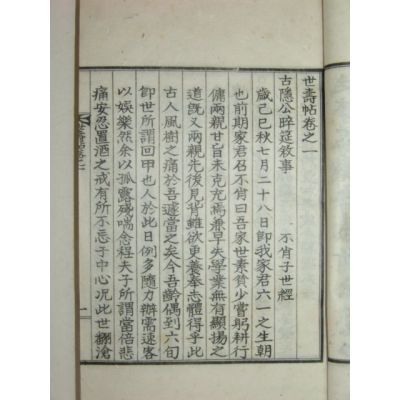 世壽帖卷之一
古隱公晬筵敘事
不肖子世經
歲己巳秋七月二十八日卽我家君六一之生朝
也前期家君召不肖曰吾家世素貧少嘗躬耕行
傭兩親甘旨未克充焉兼早失學業無有顯揚之
道旣又兩親先後見背雖欲更養奉志體得乎此
古人風樹之痛於吾遽當之矣今吾齡偶到六旬
卽世所謂回甲也人於此日例多隨力辦需速客
以娛樂然余以孤露殘喘念程夫子所謂當倍悲
痛安忍置酒之戒有所不忘于中心况此世飜滄
一